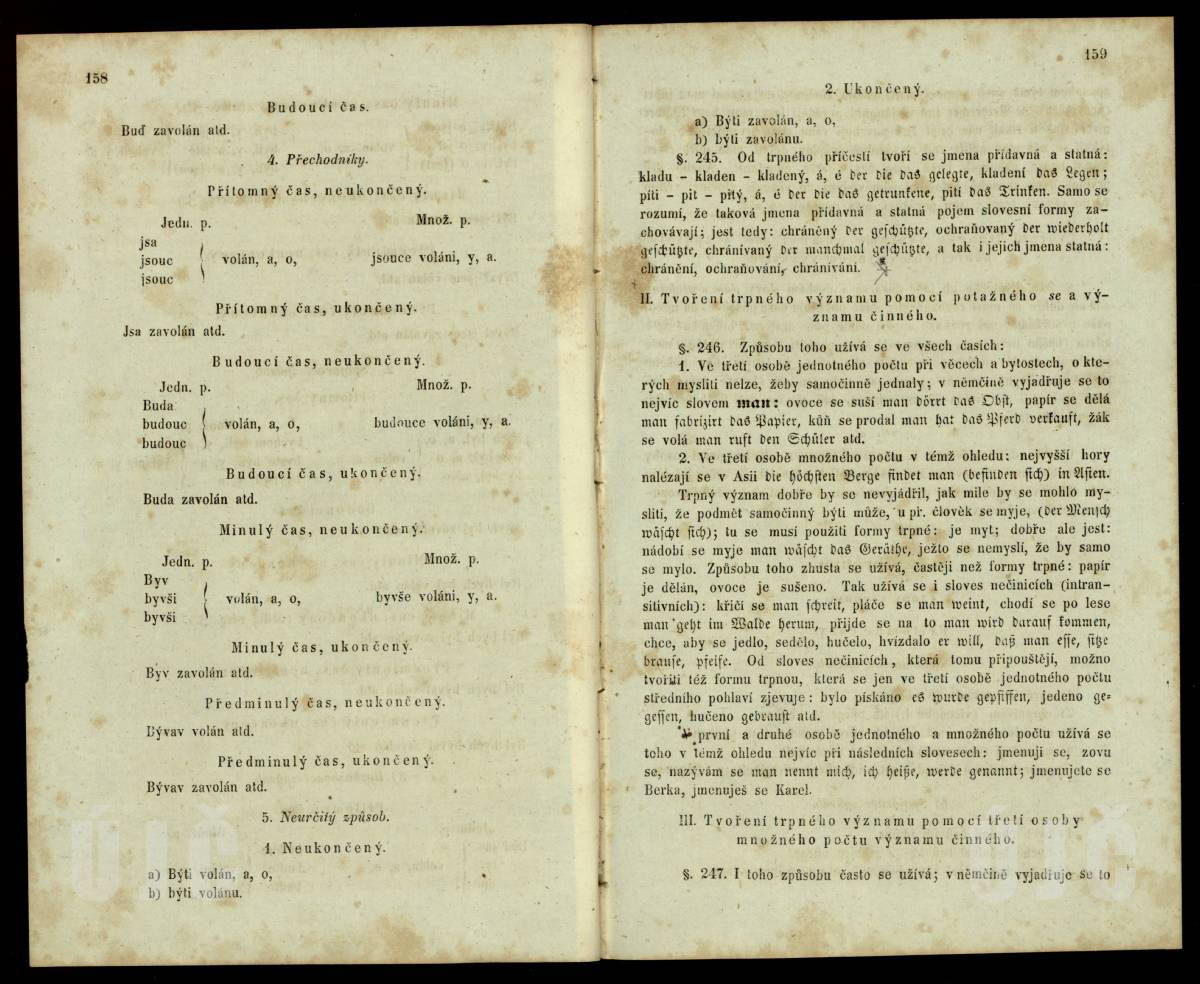 158
Budoucí čas.
Buď zavolán atd.
4. Přechodníky.
Přítomný čas, neukončený.
Jedn. p. Množ. p.
jsa
jsouc volán, a, o, jsouce voláni, y, a.
jsouc
Přítomný čas, ukončený.
Jsa zavolán atd.
Budoucí čas, neukončený.
Jedn. p. Množ. p.
Buda
budouc volán, a, o, budouce voláni, y, a.
budouc
Budoucí čas, ukončený.
Buda zavolán atd.
Minulý čas, neukončený.
Jedn. p. Množ. p.
Byv
byvši volán, a, o, byvše voláni, y, a.
byvši
Minulý čas, ukončený.
Byv zavolán atd.
Předminulý čas, neukončený.
Bývav volán atd.
Předminulý čas, ukončený.
Bývav zavolán atd.
5. Neurčitý způsob.
1. Neukončený.
a) Býti volán, a, o,
b) býti volánu.
159
2. Ukončený.
a) Býti zavolán, a, o,
b) býti zavolánu.
§. 245. Od trpného příčestí tvoří se jmena přídavná a statná:
kladu - kladen - kladený, á, é der die das gelegte, kladení das Legen;
píti - pit - pitý, á, é der die das getrunkene, pití das Trinken. Samo se
rozumí, že taková jmena přídavná a statná pojem slovesní formy za-
chovávají; jest tedy: chráněný der geschützte, ochraňovaný der wiederholt
geschützte, chránívaný der manchmal geschützte, a tak i jejich jmena statná:
chránění, ochraňování, chránívání.
II. Tvoření trpného významu pomocí potažného se a vý-
znamu činného.
§. 246. Způsobu toho užívá se ve všech časích:
1. Ve třetí osobě jednotného počtu při věcech a bytostech, o kte-
rých mysliti nelze, žeby samočinně jednaly; v němčině vyjadřuje se to
nejvíc slovem man: ovoce se suší man dörrt das Obst, papír se dělá
man fabrizirt das Papier, kůň se prodal man hat das Pferd verkauft, žák
se volá man ruft den Schüler atd.
2. Ve třetí osobě množného počtu v témž ohledu: nejvyšší hory
nalézají se v Asii die höchsten Berge findet man (befinden sich) in Asien.
Trpný význam dobře by se nevyjádřil, jak mile by se mohlo my-
sliti, že podmět samočinný býti může, u př. člověk se myje, (der Mensch
wäscht sich); tu se musí použiti formy trpné: je myt; dobře ale jest:
nádobí se myje man wäscht das Geräthe, ježto se nemyslí, že by samo
se mylo. Způsobu toho zhusta se užívá, častěji než formy trpné: papír
je dělán, ovoce je sušeno. Tak užívá se i sloves nečinicích (intran-
sitivních): křičí se man schreit, pláče se man weint, chodí se po lese
man geht im Walde herum, přijde se na to man wird darauf kommen,
chce, aby se jedlo, sedělo, hučelo, hvízdalo er will, daß man esse, sitze
brause, pfeife. Od sloves nečinicích, která tomu připouštějí, možno
tvořiti též formu trpnou, která se jen ve třetí osobě jednotného počtu
středního pohlaví zjevuje: bylo pískáno es wurde gepfiffen, jedeno ge-
gessen, hučeno gebraust atd.
V první a druhé osobě jednotného a množného počtu užívá se
toho v témž ohledu nejvíc při následních slovesech: jmenuji se, zovu
se, nazývám se man nennt mich, ich heiße, werde genannt; jmenujete se
Berka, jmenuješ se Karel.
III. Tvoření trpného významu pomocí třetí osoby
množného počtu významu činného.
§. 247. I toho způsobu často se užívá; v němčině vyjadřuje se to